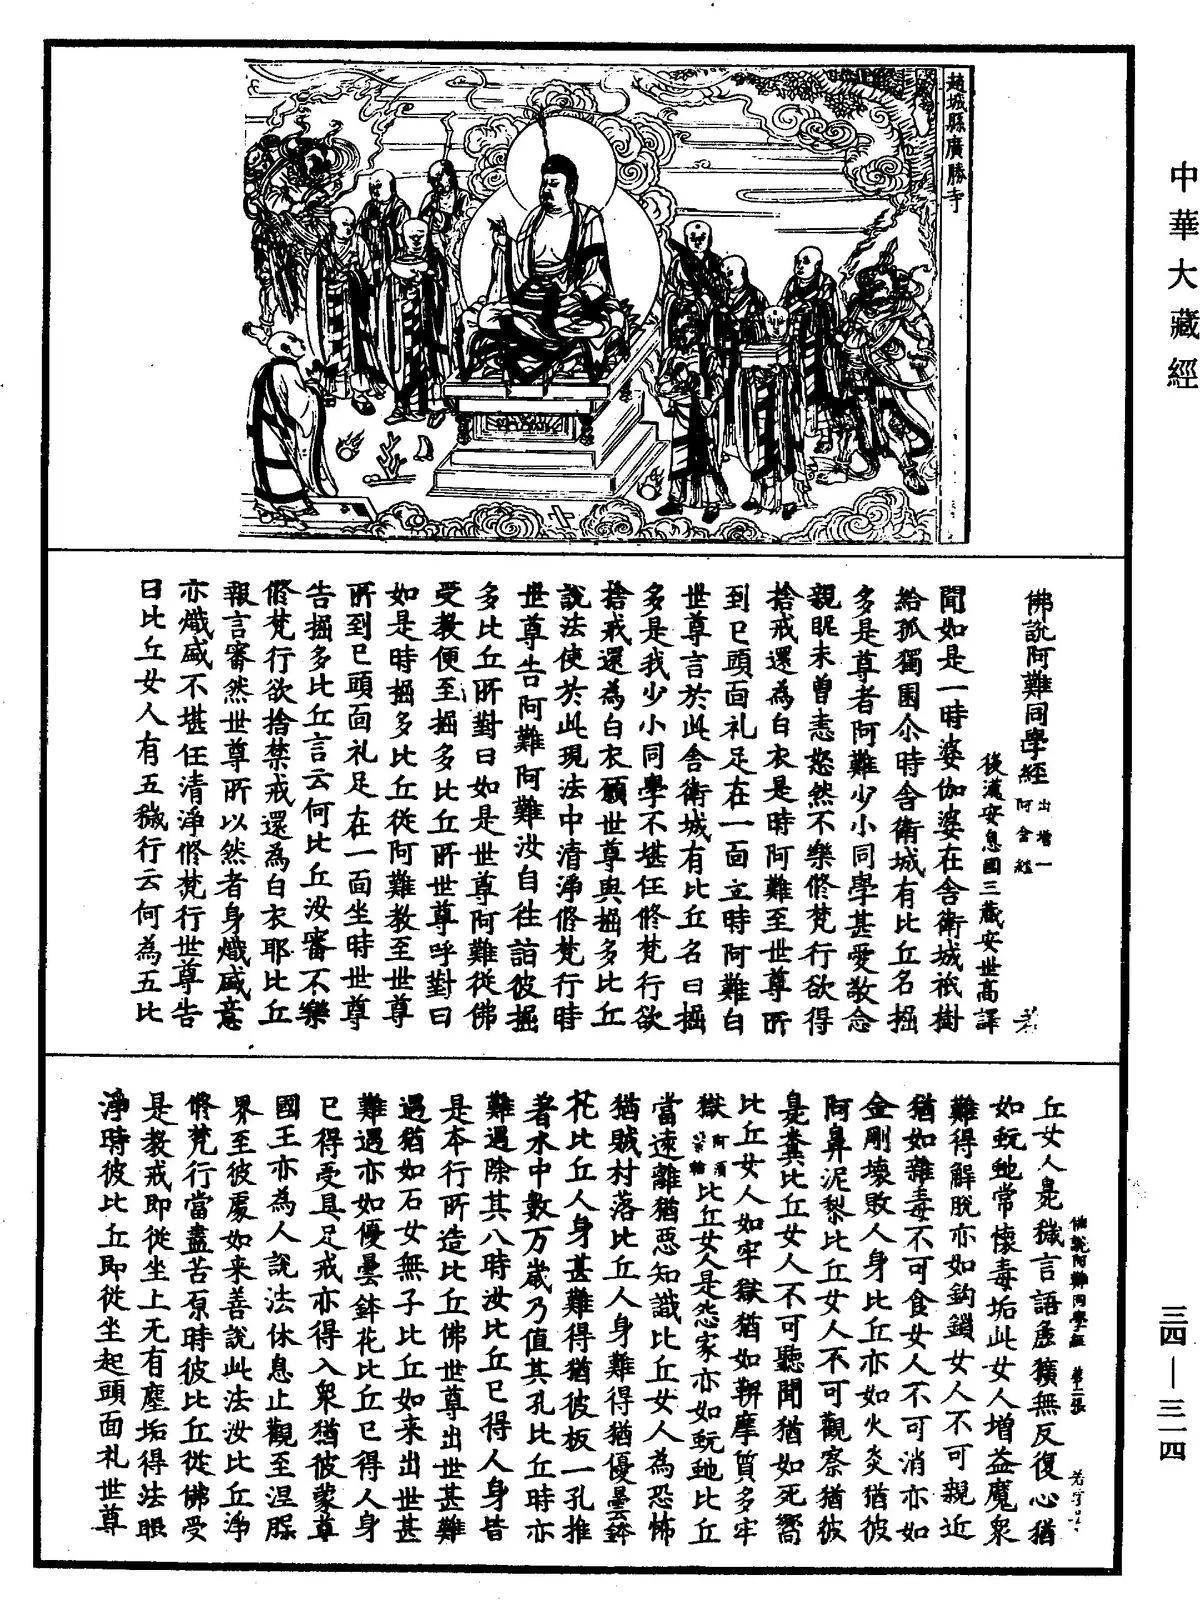 中華大藏經
趙城縣廣勝寺
佛說阿難同學經 出增一阿含經
後漢安息國三藏安世高譯
聞如是一時婆伽婆在舍衛城祇樹
給孤獨園尒時舍衛城有比丘名掘
多是尊者阿難少小同學甚愛敬念
親昵未曾恚怒然不樂修梵行欲得
捨戒還為白衣是時阿難至世尊所
到已頭面礼足在一面立時阿難白
世尊言於此舍衛城有比丘名曰掘
多是我少小同學不堪任修梵行欲
捨戒還為白衣願世尊與掘多比丘
說法使於此現法中清淨修梵行時
世尊告阿難阿難汝自往詣彼掘
多比丘所對曰如是世尊阿難從佛
受教便至掘多比丘所世尊呼對曰
如是時掘多比丘從阿難教至世尊
所到已頭面礼足在一面坐時世尊
告掘多比丘言云何比丘汝審不樂
修梵行欲捨禁戒還為白衣耶比丘
報言審然世尊所以然者身熾盛意
亦熾盛不堪任清淨修梵行世尊告
曰比丘女人有五穢行云何為五比
佛說阿難同學經 第二張
丘女人臭穢言語麁獷無反復心猶
如蚖虵常懷毒垢此女人增益魔衆
難得解脫亦如鈎鎖女人不可親近
猶如雜毒不可食女人不可消亦如
金剛壞敗人身比丘亦如火炎猶彼
阿鼻泥犁比丘女人不可觀察猶彼
臭糞比丘女人不可聽聞猶如死嚮
比丘女人如牢獄猶如鞞摩質多牢
獄 比丘女人是怨家亦如蚖虵比丘
當遠離猶惡知識比丘女人為恐怖
猶賊村落比丘人身難得猶優曇鉢
花比丘人身甚難得猶彼板一孔推
著水中數万歲乃值其孔比丘時亦
難遇除其八時汝比丘已得人身皆
是本行所造比丘佛世尊出世甚難
遇猶如石女無子比丘如来出世甚
難遇亦如優曇鉢花比丘已得人身
已得受具足戒亦得入衆猶彼蒙尊
國王亦為人說法休息止觀至涅槃
界至彼處如来善說此法汝比丘淨
修梵行當盡苦原時彼比丘從佛受
是教戒即從坐上无有塵垢得法眼
淨時彼比丘即從坐起頭面礼世尊
三四—三一四